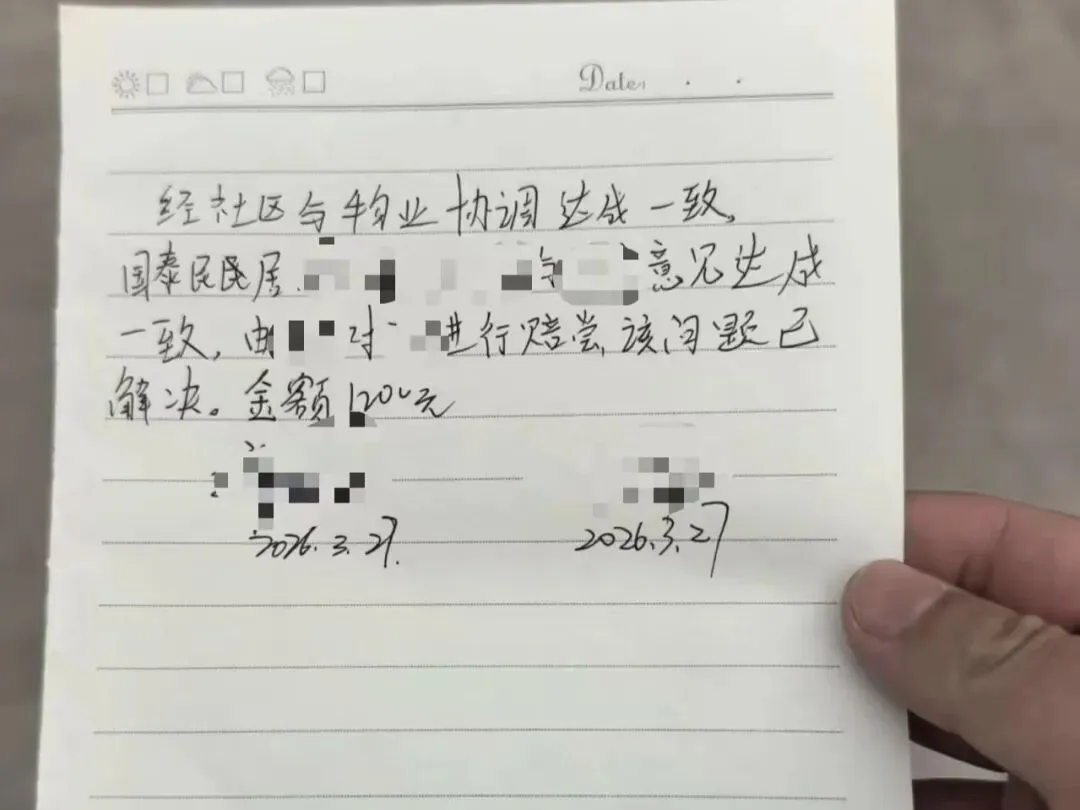 Date:
经社区与物业协调达成一致,
国泰民居 与 意见达成
一致,由 对 进行赔尝,该问题已
解决。金额1200元
2026.3.27.
2026.3.27